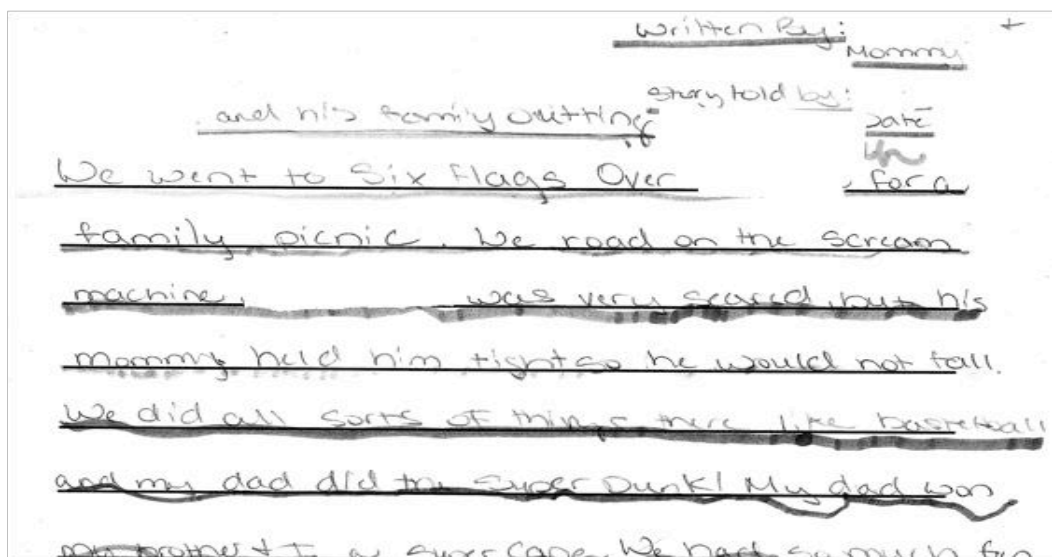 Written By:
Mommy
Story told by:
and his family outting
Date
We went to Six Flags Over , for a
family picnic. We road on the scream
machine. was very scared, but his
mommy held him tight so he would not fall.
We did all sorts of things there like basketball
and my dad did the Super Dunk! My dad won
my brother & I a super cape. We had so much fun